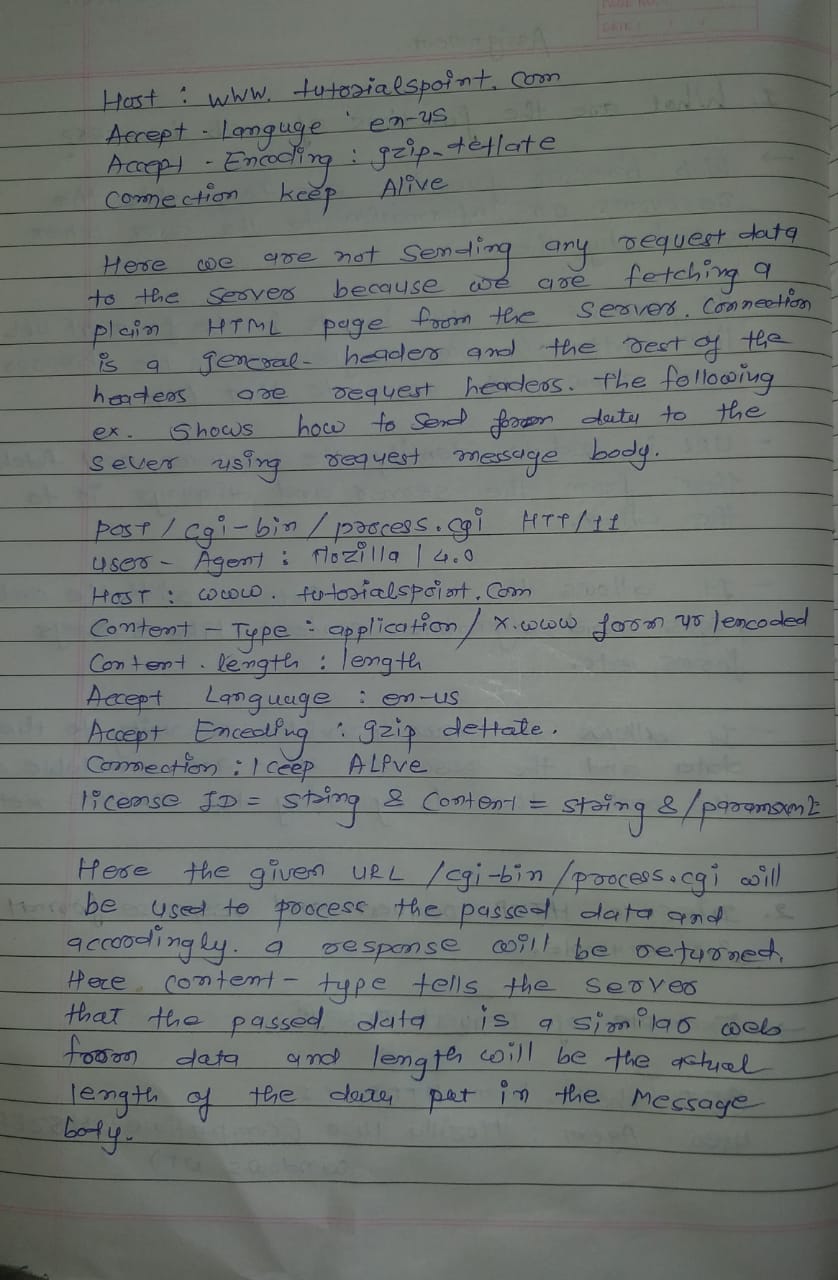 PAGE NO.
DATE:
Host : www. tutorialspoint. com
Accept - Languge : en-us
Accept - Encoding : gzip-deflate
Connection keep Alive
Here we are not sending any request data
to the server because we are fetching a
plain HTML page from the server. Connection
is a general- header and the rest of the
headers are request headers. the following
ex. Shows how to send form data to the
sever using request message body.
post / cgi-bin / process.cgi HTTP/11
user - Agent : Mozilla / 4.0
HOST : www. tutorialspoint.com
Content - Type : application / x.www form ur lencoded
Content . length : length
Accept Language : en-us
Accept Encoding : gzip deflate.
Connection : keep Alive
license ID = string & content = string & /paramsxml
Here the given URL /cgi-bin /process.cgi will
be used to process the passed data and
accoodingly. a response will be returned.
Here content - type tells the server
that the passed data is a similar web
form data and length will be the actual
length of the data put in the Message
body.